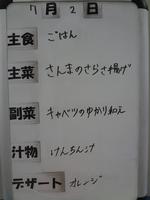 7月2日
主食 ごはん
主菜 さんまのさらさ揚げ
副菜 キャベツのゆかり和え
汁物 けんちん汁
デザート オレンジ